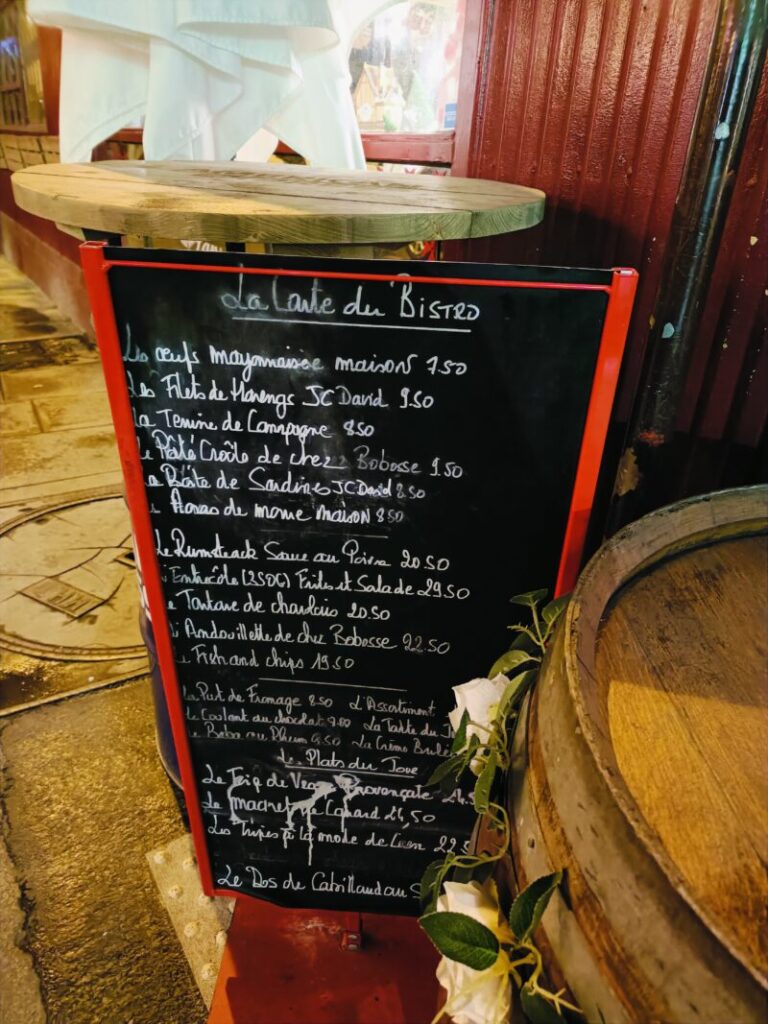 La Carte du BISTRO
Les œufs mayonnaise maison 7.50
Les Filets de Harengs JC David 9.50
La Terrine de Campagne 8.50
Le Pâté Croûte de chez Bobosse 9.50
La Boîte de Sardines JC David 8.50
de morue maison 8.50
Le Rumsteack Sauce au Poivre 20.50
L'Entrecôte (250G) Frites et Salade 29.50
Le Tartare de charolais 20.50
L'Andouillette de chez Bobosse 22.50
Le Fish and chips 19.50
Le Puit de Fromage 8.50 L'Assortiment
Le Coulant au chocolat 9.00 La Tarte du
Le Baba au Rhum 9.50 La Crème Brulé
Les Plats du Jour
Le de Veau Provençale 24.5
Le magret de Canard 24,50
Les Tripes à la mode de Caen 22.5
Le Dos de Cabillaud au